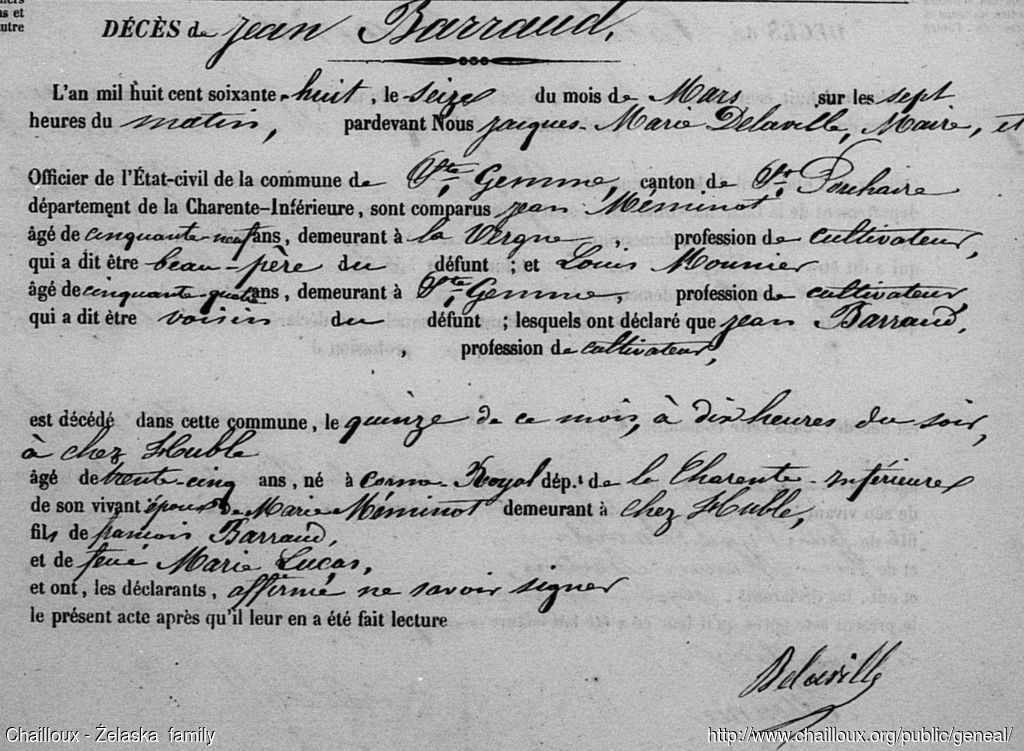 ns et
utre
DÉCÈS de Jean Barraud,
L'an mil huit cent soixante-huit, le seize du mois de Mars sur les sept
heures du matin, pardevant Nous Jacques-Marie Delaville, Maire, et
Officier de l'État-civil de la commune de Ste Gemme, canton de St Porchaire
département de la Charente-Inférieure, sont comparus Jean Méminot
âgé de cinquante-neuf ans, demeurant à la Vergne, profession de cultivateur,
qui a dit être beau-père du défunt ; et Louis Mounier
âgé de cinquante-quatre ans, demeurant à Ste Gemme profession de cultivateur,
qui a dit être voisin du défunt ; lesquels ont déclaré que Jean Barraud,
, profession de cultivateur,
est décédé dans cette commune, le quinze de ce mois, à dix heures du soir,
à chez Hublé
âgé de trente-cinq ans, né à Corme-Royal dép.t de la Charente-inférieure
de son vivant époux de Marie Méminot demeurant à chez Hublé,
fils de francois Barraud,
et de feue Marie Lucas,
et ont, les déclarants, affirmé ne savoir signer
le présent acte après qu'il leur en a été fait lecture
Delaville
Chailloux - Želaska family http://www.chailloux.org/public/geneal/